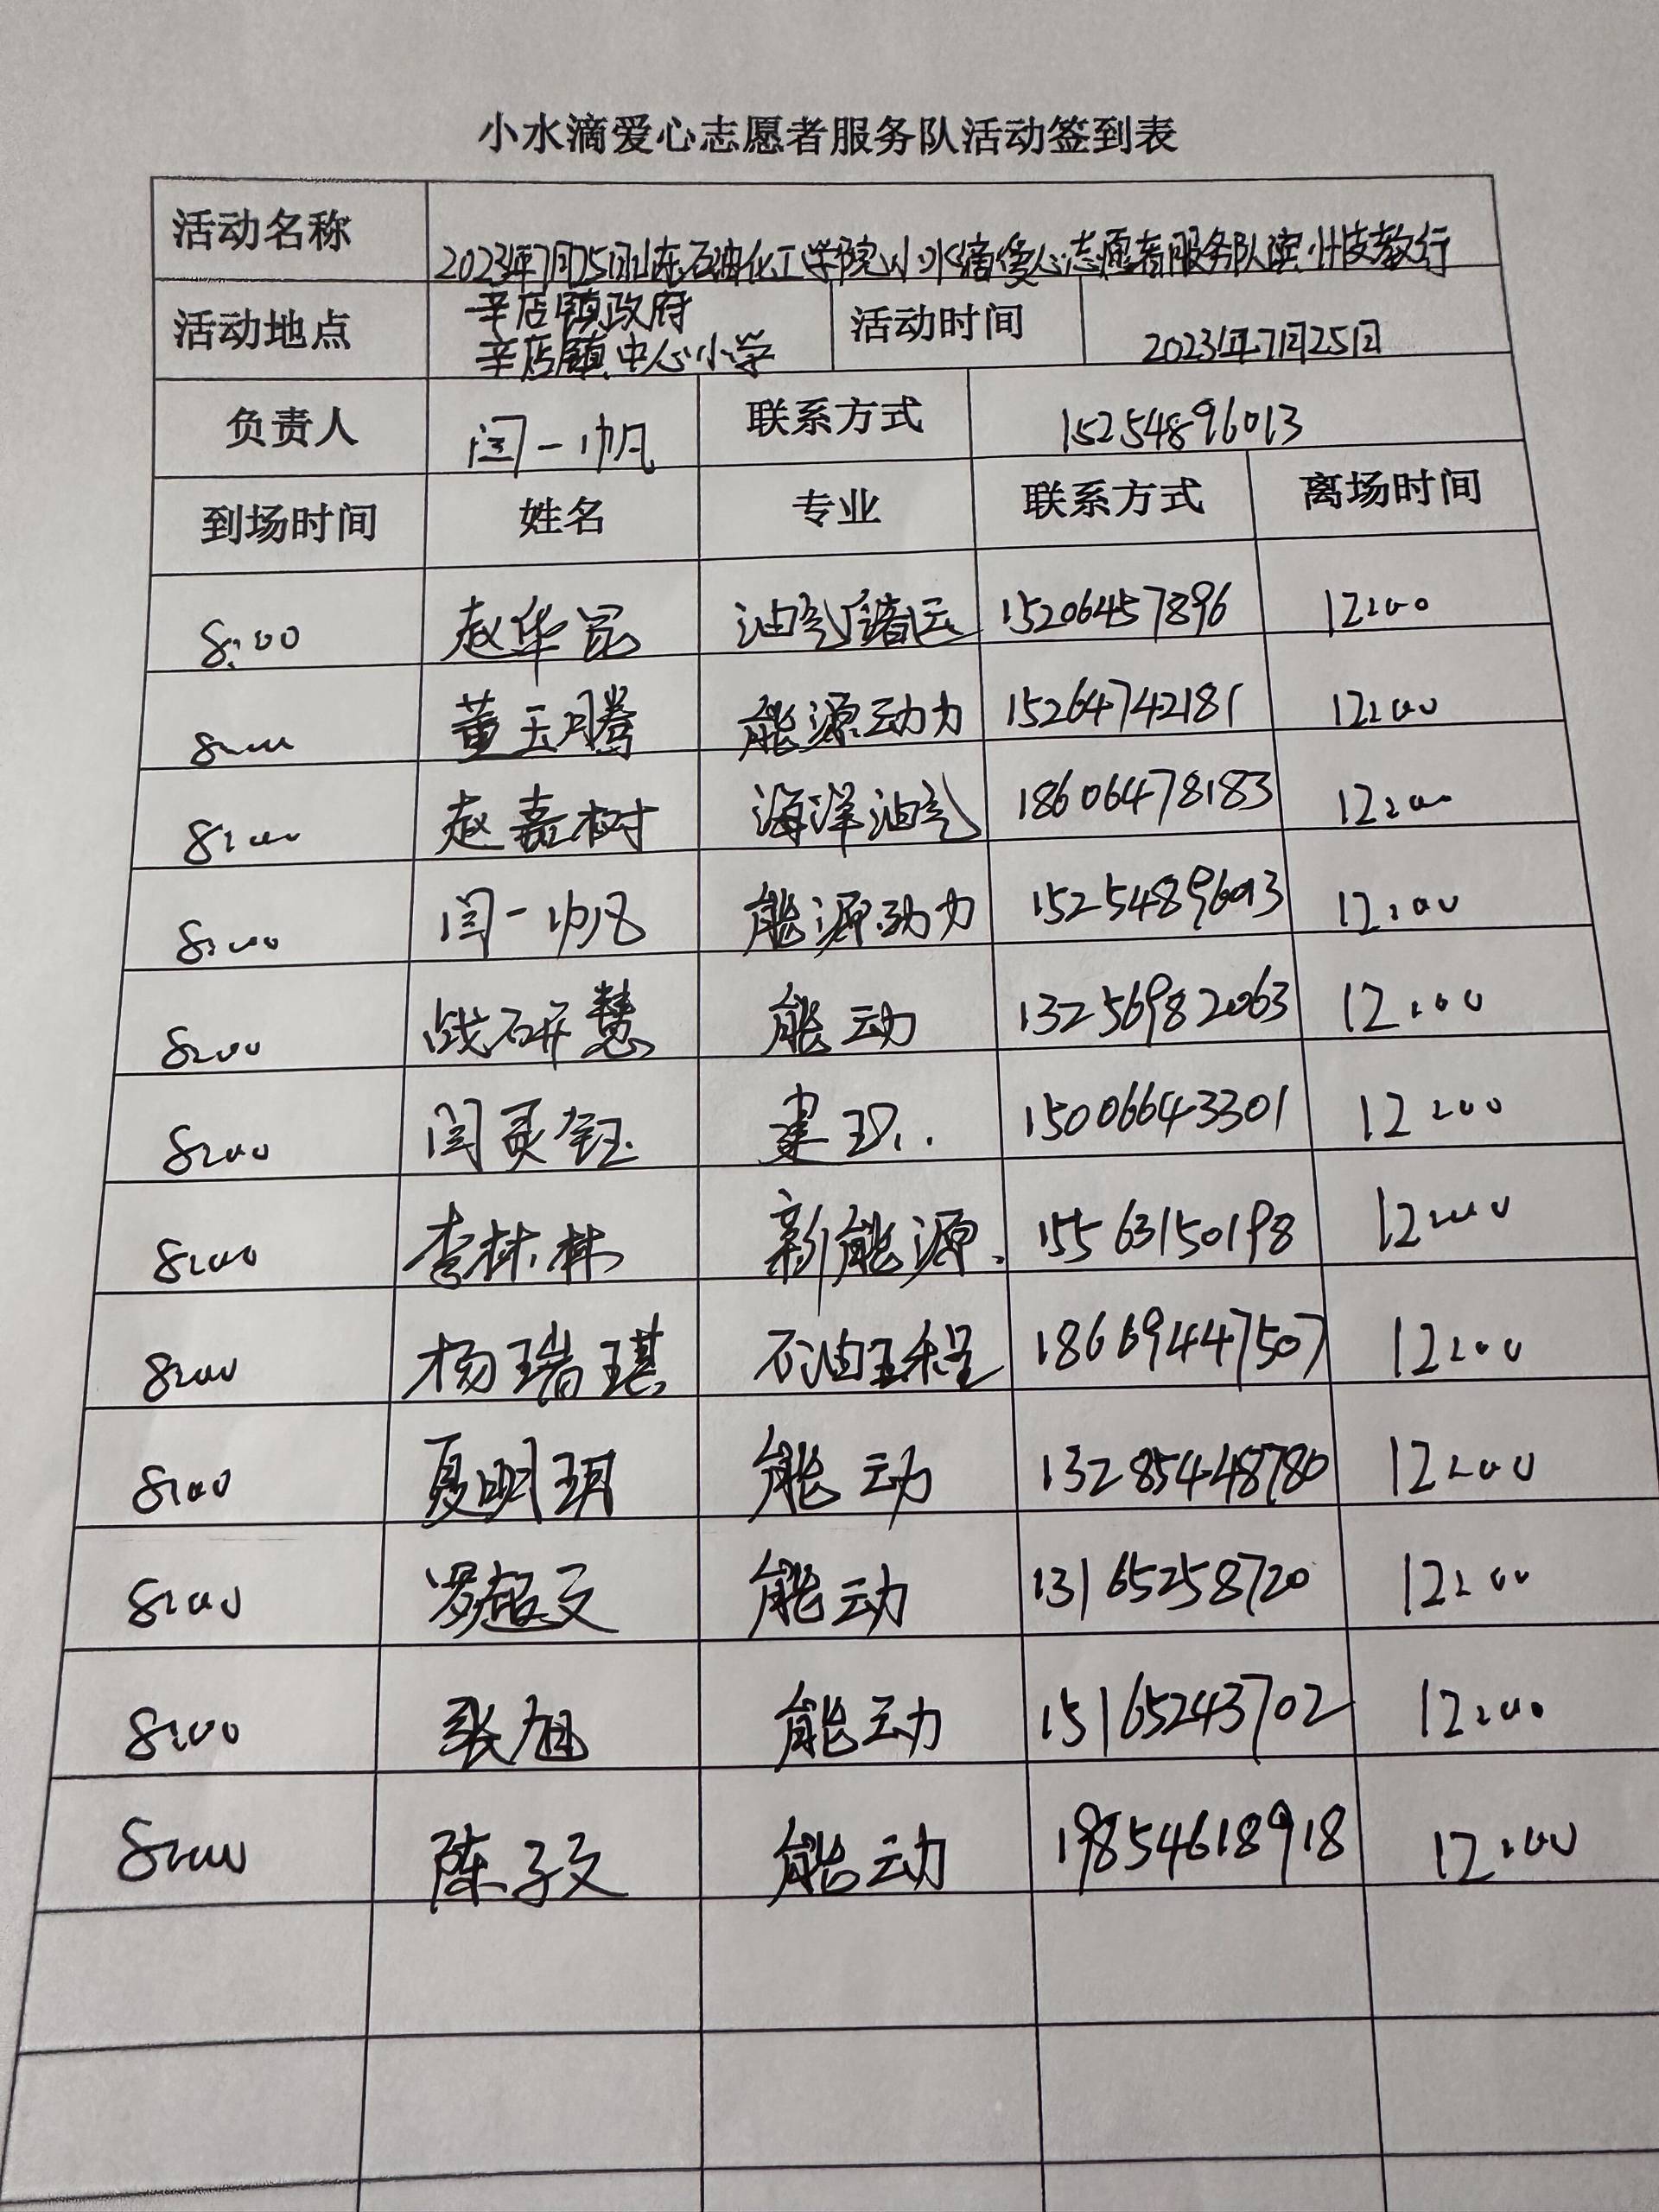 小水滴爱心志愿者服务队活动签到表
活动名称 2023年7月25日山东石油化工学院小水滴爱心志愿者服务队滨州支教行
活动地点 辛店镇政府 辛店镇中心小学 活动时间 2023年7月25日
负责人 闫一帆 联系方式 15254896013
到场时间 姓名 专业 联系方式 离场时间
8:00 赵华昆 油气储运 15206457896 12:00
8:00 董玉腾 能源动力 15264742181 12:00
8:00 赵嘉树 海洋油气 18606478183 12:00
8:00 闫一帆 能源动力 15254896013 12:00
8:00 战研慧 能动 13256982063 12:00
8:00 闫灵钰 建环 15006643301 12:00
8:00 李林林 新能源 15563150198 12:00
8:00 杨瑞琪 石油工程 18669447507 12:00
8:00 夏明玥 能动 13285448780 12:00
8:00 罗超文 能动 13165258720 12:00
8:00 张旭 能动 15165243702 12:00
8:00 陈子文 能动 19854618918 12:00